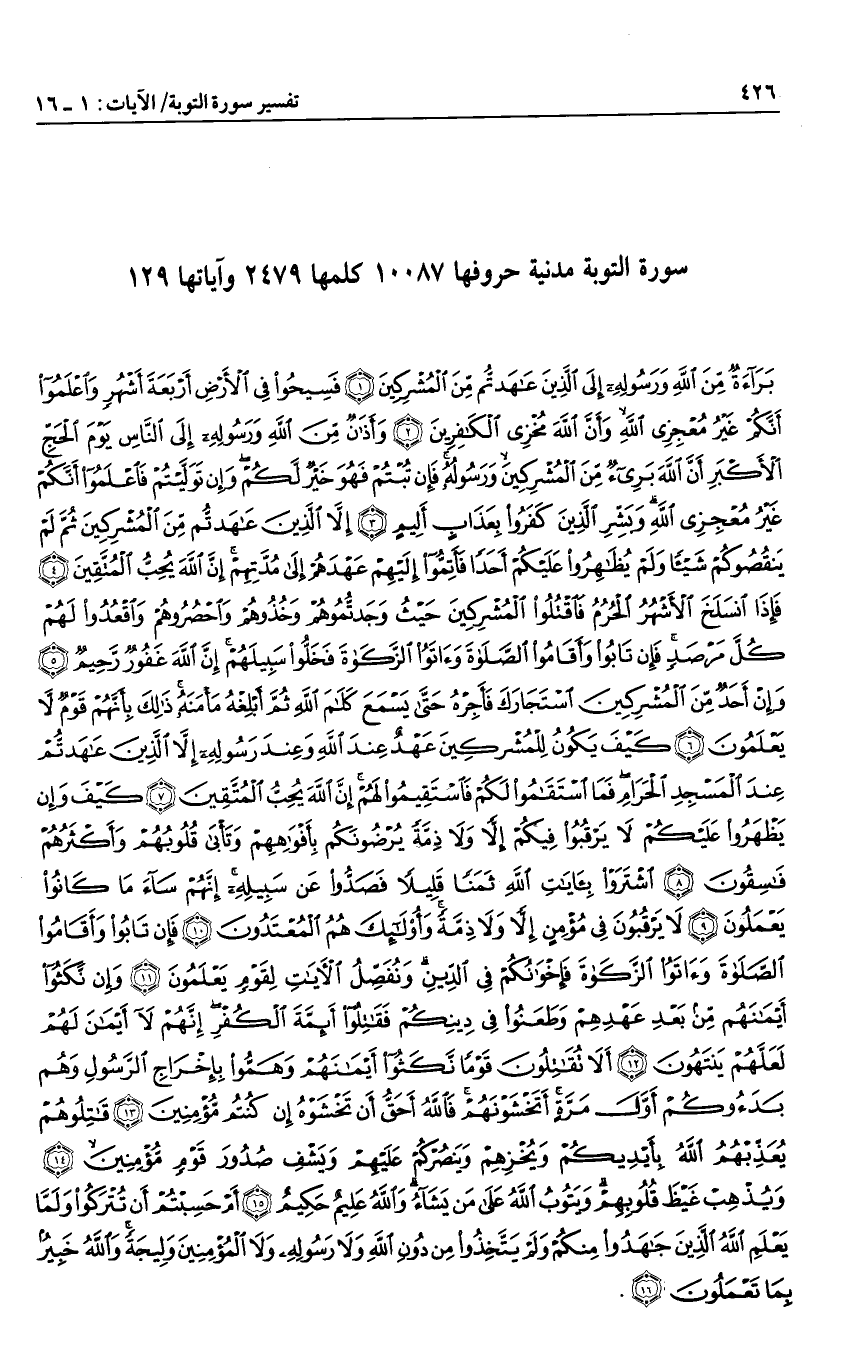 ٤٢٦
تفسير سورة التوبة/ الآيات: ١ ـ ١٦
سورة التوبة مدنية حروفها ١٠٠٨٧ كلمها ٢٤٧٩ وآياتها ١٢٩
بَرَآءَةٌ مِّنَ ٱللَّهِ وَرَسُولِهِۦٓ إِلَى ٱلَّذِينَ عَٰهَدتُّم مِّنَ ٱلْمُشْرِكِينَ ﴿١﴾ فَسِيحُوا۟ فِى ٱلْأَرْضِ أَرْبَعَةَ أَشْهُرٍ وَٱعْلَمُوٓا۟
أَنَّكُمْ غَيْرُ مُعْجِزِى ٱللَّهِ ۙ وَأَنَّ ٱللَّهَ مُخْزِى ٱلْكَٰفِرِينَ ﴿٢﴾ وَأَذَٰنٌ مِّنَ ٱللَّهِ وَرَسُولِهِۦٓ إِلَى ٱلنَّاسِ يَوْمَ ٱلْحَجِّ
ٱلْأَكْبَرِ أَنَّ ٱللَّهَ بَرِىٓءٌ مِّنَ ٱلْمُشْرِكِينَ ۙ وَرَسُولُهُۥ ۚ فَإِن تُبْتُمْ فَهُوَ خَيْرٌ لَّكُمْ ۖ وَإِن تَوَلَّيْتُمْ فَٱعْلَمُوٓا۟ أَنَّكُمْ
غَيْرُ مُعْجِزِى ٱللَّهِ ۗ وَبَشِّرِ ٱلَّذِينَ كَفَرُوا۟ بِعَذَابٍ أَلِيمٍ ﴿٣﴾ إِلَّا ٱلَّذِينَ عَٰهَدتُّم مِّنَ ٱلْمُشْرِكِينَ ثُمَّ لَمْ
يَنقُصُوكُمْ شَيْـًٔا وَلَمْ يُظَٰهِرُوا۟ عَلَيْكُمْ أَحَدًا فَأَتِمُّوٓا۟ إِلَيْهِمْ عَهْدَهُمْ إِلَىٰ مُدَّتِهِمْ ۚ إِنَّ ٱللَّهَ يُحِبُّ ٱلْمُتَّقِينَ ﴿٤﴾
فَإِذَا ٱنسَلَخَ ٱلْأَشْهُرُ ٱلْحُرُمُ فَٱقْتُلُوا۟ ٱلْمُشْرِكِينَ حَيْثُ وَجَدتُّمُوهُمْ وَخُذُوهُمْ وَٱحْصُرُوهُمْ وَٱقْعُدُوا۟ لَهُمْ
كُلَّ مَرْصَدٍ ۚ فَإِن تَابُوا۟ وَأَقَامُوا۟ ٱلصَّلَوٰةَ وَءَاتَوُا۟ ٱلزَّكَوٰةَ فَخَلُّوا۟ سَبِيلَهُمْ ۚ إِنَّ ٱللَّهَ غَفُورٌ رَّحِيمٌ ﴿٥﴾
وَإِنْ أَحَدٌ مِّنَ ٱلْمُشْرِكِينَ ٱسْتَجَارَكَ فَأَجِرْهُ حَتَّىٰ يَسْمَعَ كَلَٰمَ ٱللَّهِ ثُمَّ أَبْلِغْهُ مَأْمَنَهُۥ ۚ ذَٰلِكَ بِأَنَّهُمْ قَوْمٌ لَّا
يَعْلَمُونَ ﴿٦﴾ كَيْفَ يَكُونُ لِلْمُشْرِكِينَ عَهْدٌ عِندَ ٱللَّهِ وَعِندَ رَسُولِهِۦٓ إِلَّا ٱلَّذِينَ عَٰهَدتُّمْ
عِندَ ٱلْمَسْجِدِ ٱلْحَرَامِ ۖ فَمَا ٱسْتَقَٰمُوا۟ لَكُمْ فَٱسْتَقِيمُوا۟ لَهُمْ ۚ إِنَّ ٱللَّهَ يُحِبُّ ٱلْمُتَّقِينَ ﴿٧﴾ كَيْفَ وَإِن
يَظْهَرُوا۟ عَلَيْكُمْ لَا يَرْقُبُوا۟ فِيكُمْ إِلًّا وَلَا ذِمَّةً ۚ يُرْضُونَكُم بِأَفْوَٰهِهِمْ وَتَأْبَىٰ قُلُوبُهُمْ وَأَكْثَرُهُمْ
فَٰسِقُونَ ﴿٨﴾ ٱشْتَرَوْا۟ بِـَٔايَٰتِ ٱللَّهِ ثَمَنًا قَلِيلًا فَصَدُّوا۟ عَن سَبِيلِهِۦٓ ۚ إِنَّهُمْ سَآءَ مَا كَانُوا۟
يَعْمَلُونَ ﴿٩﴾ لَا يَرْقُبُونَ فِى مُؤْمِنٍ إِلًّا وَلَا ذِمَّةً ۚ وَأُو۟لَٰٓئِكَ هُمُ ٱلْمُعْتَدُونَ ﴿١٠﴾ فَإِن تَابُوا۟ وَأَقَامُوا۟
ٱلصَّلَوٰةَ وَءَاتَوُا۟ ٱلزَّكَوٰةَ فَإِخْوَٰنُكُمْ فِى ٱلدِّينِ ۗ وَنُفَصِّلُ ٱلْءَايَٰتِ لِقَوْمٍ يَعْلَمُونَ ﴿١١﴾ وَإِن نَّكَثُوٓا۟
أَيْمَٰنَهُم مِّنۢ بَعْدِ عَهْدِهِمْ وَطَعَنُوا۟ فِى دِينِكُمْ فَقَٰتِلُوٓا۟ أَئِمَّةَ ٱلْكُفْرِ ۙ إِنَّهُمْ لَآ أَيْمَٰنَ لَهُمْ
لَعَلَّهُمْ يَنتَهُونَ ﴿١٢﴾ أَلَا تُقَٰتِلُونَ قَوْمًا نَّكَثُوٓا۟ أَيْمَٰنَهُمْ وَهَمُّوا۟ بِإِخْرَاجِ ٱلرَّسُولِ وَهُم
بَدَءُوكُمْ أَوَّلَ مَرَّةٍ ۚ أَتَخْشَوْنَهُمْ ۚ فَٱللَّهُ أَحَقُّ أَن تَخْشَوْهُ إِن كُنتُم مُّؤْمِنِينَ ﴿١٣﴾ قَٰتِلُوهُمْ
يُعَذِّبْهُمُ ٱللَّهُ بِأَيْدِيكُمْ وَيُخْزِهِمْ وَيَنصُرْكُمْ عَلَيْهِمْ وَيَشْفِ صُدُورَ قَوْمٍ مُّؤْمِنِينَ ۙ ﴿١٤﴾
وَيُذْهِبْ غَيْظَ قُلُوبِهِمْ ۗ وَيَتُوبُ ٱللَّهُ عَلَىٰ مَن يَشَآءُ ۗ وَٱللَّهُ عَلِيمٌ حَكِيمٌ ﴿١٥﴾ أَمْ حَسِبْتُمْ أَن تُتْرَكُوا۟ وَلَمَّا
يَعْلَمِ ٱللَّهُ ٱلَّذِينَ جَٰهَدُوا۟ مِنكُمْ وَلَمْ يَتَّخِذُوا۟ مِن دُونِ ٱللَّهِ وَلَا رَسُولِهِۦ وَلَا ٱلْمُؤْمِنِينَ وَلِيجَةً ۚ وَٱللَّهُ خَبِيرٌۢ
بِمَا تَعْمَلُونَ ﴿١٦﴾ .